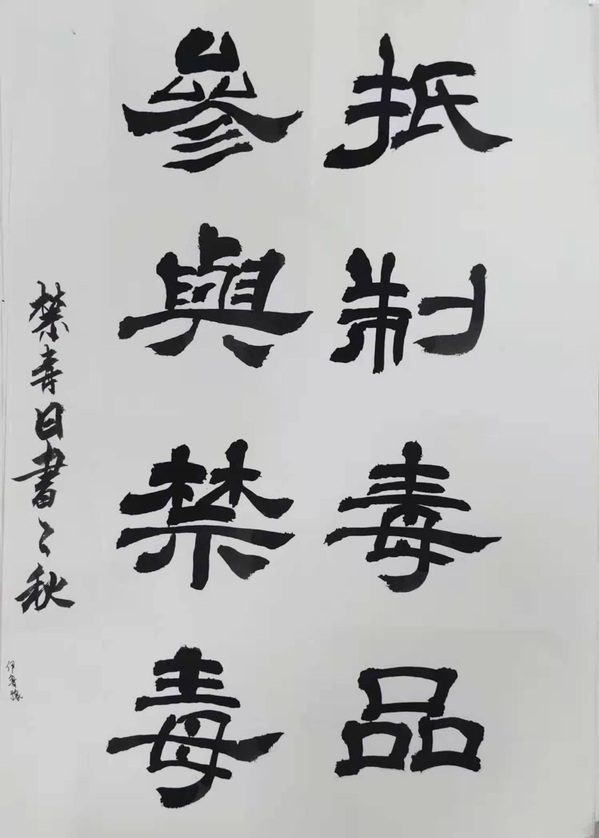 抵制毒品
參與禁毒
禁毒日書之秋